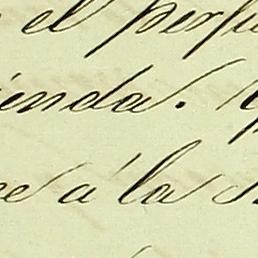 el perfu
ienda.
e á la